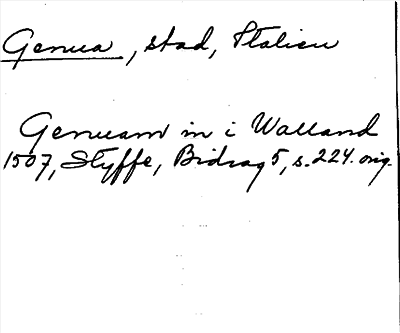 Genua, stad, Italien
Genuam in i Walland
1507, Styffe, Bidrag 5, s. 224. orig.